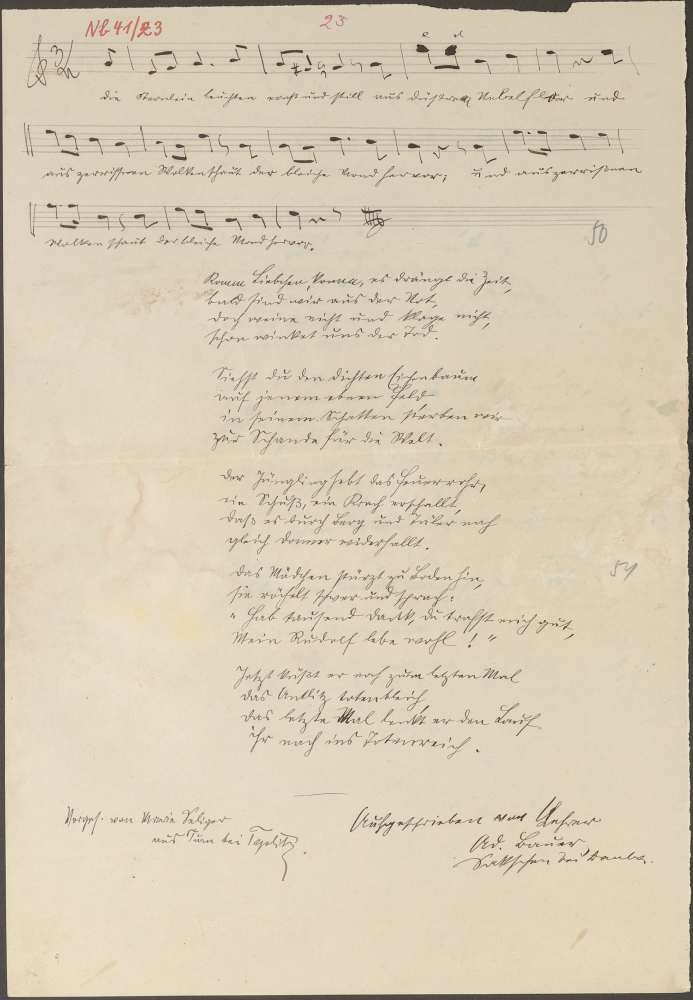 Nb 41/23
23
e d
die Sternlein leuchten ernst und still aus düstrem Nebelflor und
aus zerrissnen Wolken schaut der bleiche Mond hervor; und aus zerrissnen
Wolken schaut der bleiche Mond hervor.
50
Komm Liebchen, komm, es drängt die Zeit,
bald sind wir aus der Not,
doch weine nicht und klage nicht,
schon winket uns der Tod.
Siehst du den dichten Eichenbaum
auf jenem ebnen Feld
in seinem Schatten sterben wir
zur Schande für die Welt.
Der Jüngling hebt das Feuerrohr,
ein Schuß, ein Krach erschallt,
daß es durch Berg und Täler noch
gleich Donner widerhallt.
Das Mädchen stürzt zu Boden hin,
sie röchelt schwer und sprach:
"Hab tausend Dank, du trafst mich gut,
Mein Rudolf lebe wohl!"
Jetzt küßt er noch zum letzten Mal
das Antlitz totenbleich,
das letzte Mal lenkt er den Lauf
ihr nach ins Totenreich.
Vorges. von Marie Seliger
aus Turn bei Teplitz.
Aufgeschrieben von Lehrer
Ad. Bauer,
bei